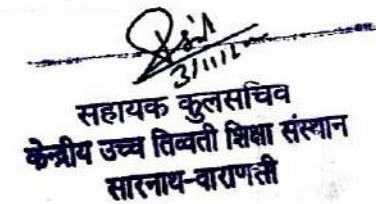 3/11/2
सहायक कुलसचिव
केन्द्रीय उच्च तिब्बती शिक्षा संस्थान
सारनाथ-वाराणसी